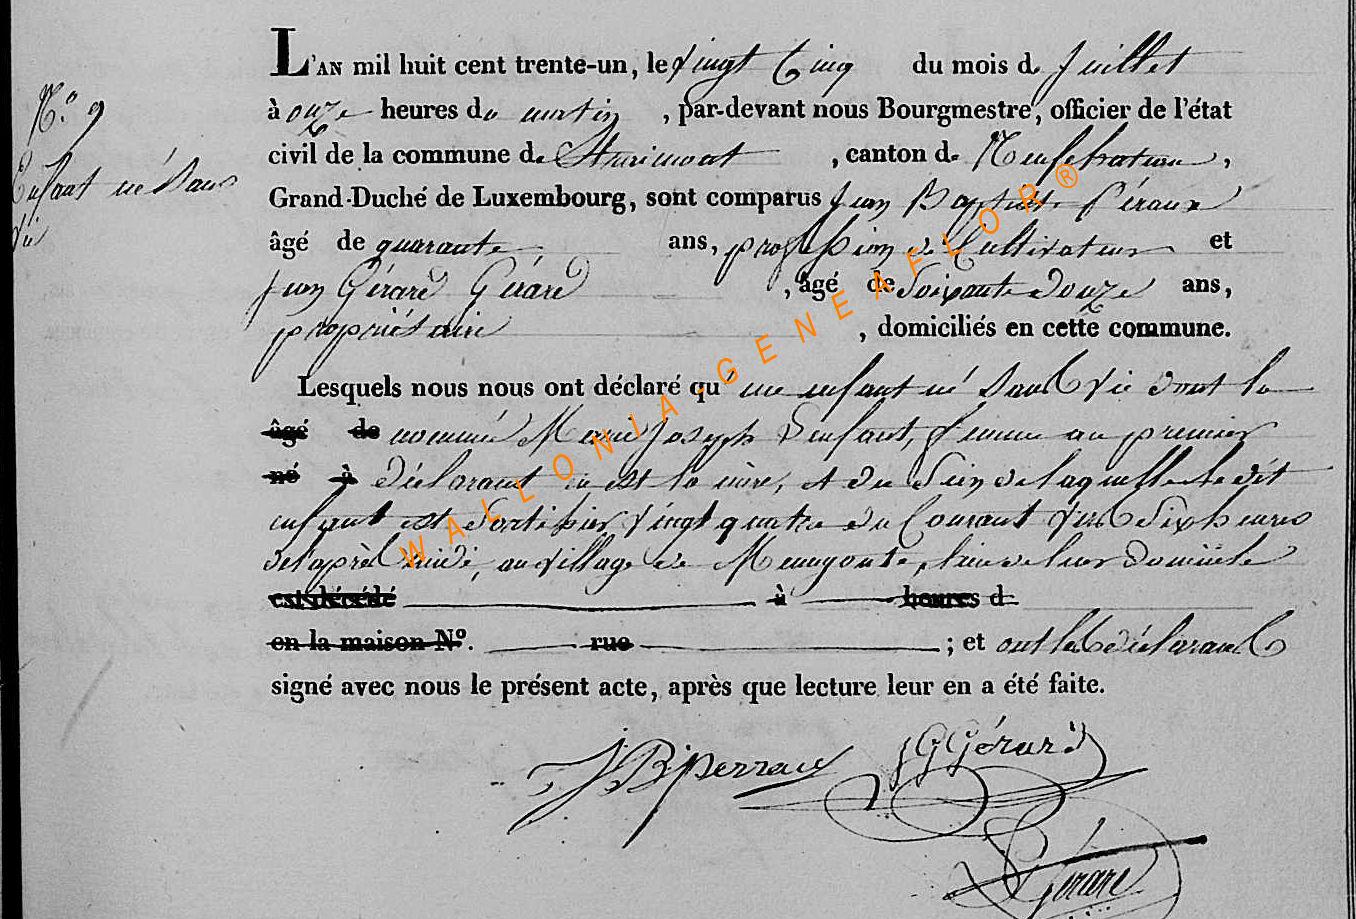 L'AN mil huit cent trente-un, le vingt cinq du mois de Juillet
à onze heures du matin, par-devant nous Bourgmestre, officier de l'état
N.° 9
civil de la commune de Straimont, canton de Neufchateau,
Enfant né sans
vie
Grand-Duché de Luxembourg, sont comparus Jean Baptiste Péraux
âgé de quarante ans, profession de Cultivateur et
Jean Gérard Gérard, âgé de Soixante douze ans,
propriétaire, domiciliés en cette commune.
Lesquels nous nous ont déclaré qu'un enfant né sans vie dont la
âgé de nommée Marie Joseph Lenfant, femme au premier
né à déclarant en est la mère, et du sein de laquelle le dit
enfant est sorti hier vingt quatre du Courant vers dix heures
de l'après midi, au village de Menugoutte, lieu de leur domicile
est décédé à heures d
en la maison N°. rue ; et ont les déclarants
signé avec nous le présent acte, après que lecture leur en a été faite.
JB perraux GGérard
Gérard
WALLONIA-GENEAFLOR®